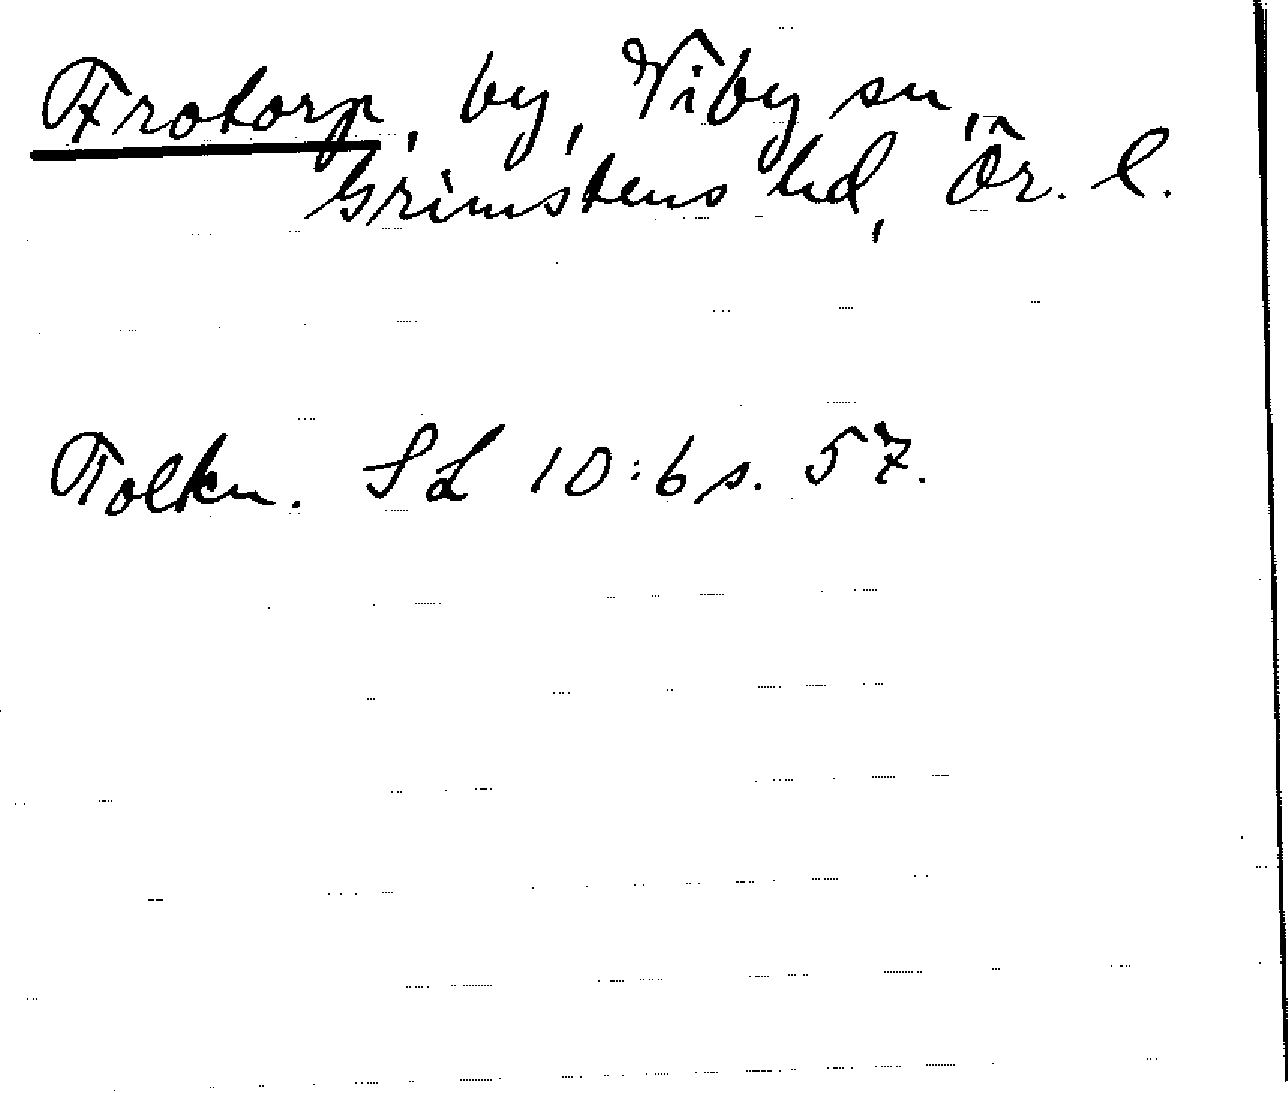 Frotorp, by, Viby sn,
Grimstens hd, Ör. l.
Tolkn. Sd 10:6 s. 57.